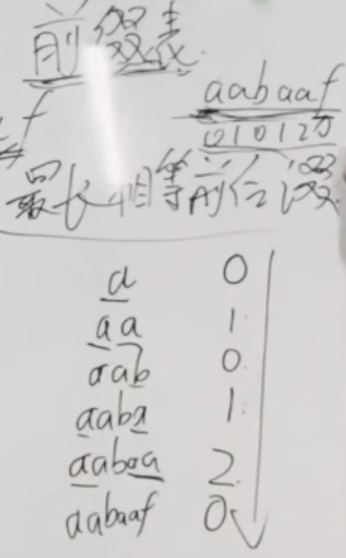 前缀表
f
aabaaf
010120
最长相等前后缀
a 0
aa 1
aab 0
aaba 1
aabaa 2
aabaaf 0